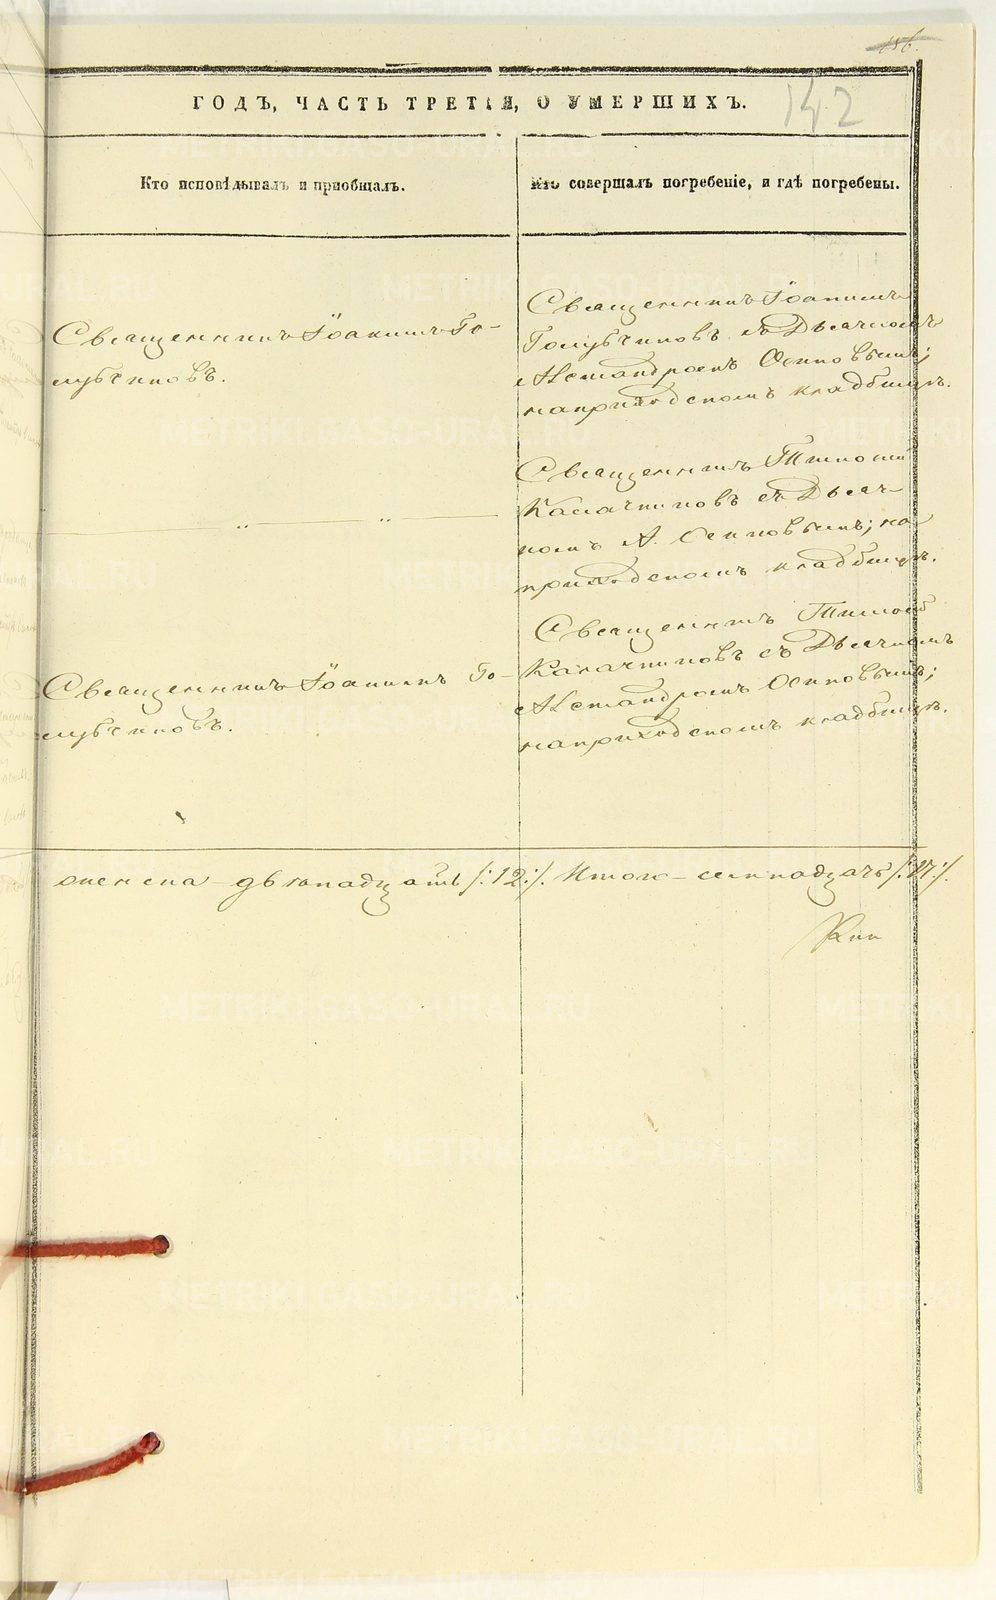 156.
142
ГОДЪ, ЧАСТЬ ТРЕТІЯ, О УМЕРШИХЪ.
Кто исповѣдывалъ и пріобщалъ.
Кто совершалъ погребеніе, и гдѣ погребены.
Священникъ Іоакимъ Го-
лубчиковъ.
Священникъ Іоакимъ
Голубчиковъ съ Дьячкомъ
Александромъ Осиповымъ;
на приходскомъ кладбищѣ.
Священникъ Тимоѳей
Калачниковъ съ Дьяч-
комъ А. Осиповымъ; на
приходскомъ кладбищѣ.
Священникъ Іоакимъ Го-
лубчиковъ.
Священникъ Тимоѳей
Калачниковъ съ Дьячкомъ
Александромъ Осиповымъ;
на приходскомъ кладбищѣ.
женска двѣнадцать /:12:/. Итого семнадцать /:17:/.
METRIKI.GASO-URAL.RU